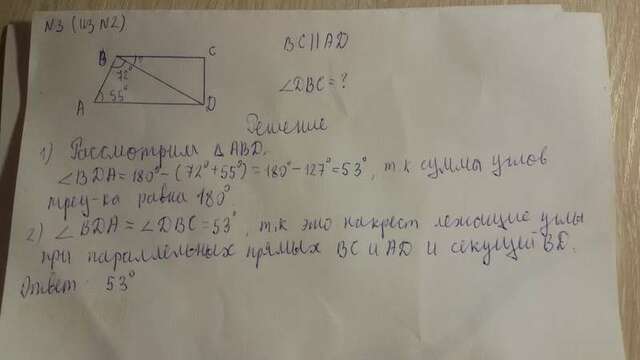 №3 (из №2)
BC||AD
B
C
72°
A
55°
D
∠DBC=?
Решение
1) Рассмотрим △ABD.
∠BDA=180°-(72°+55°)=180°-127°=53°, т.к сумма углов
треу-ка равна 180°.
2) ∠BDA=∠DBC=53°, т.к это накрест лежащие углы
при параллельных прямых BC и AD и секущий BD.
Ответ: 53°